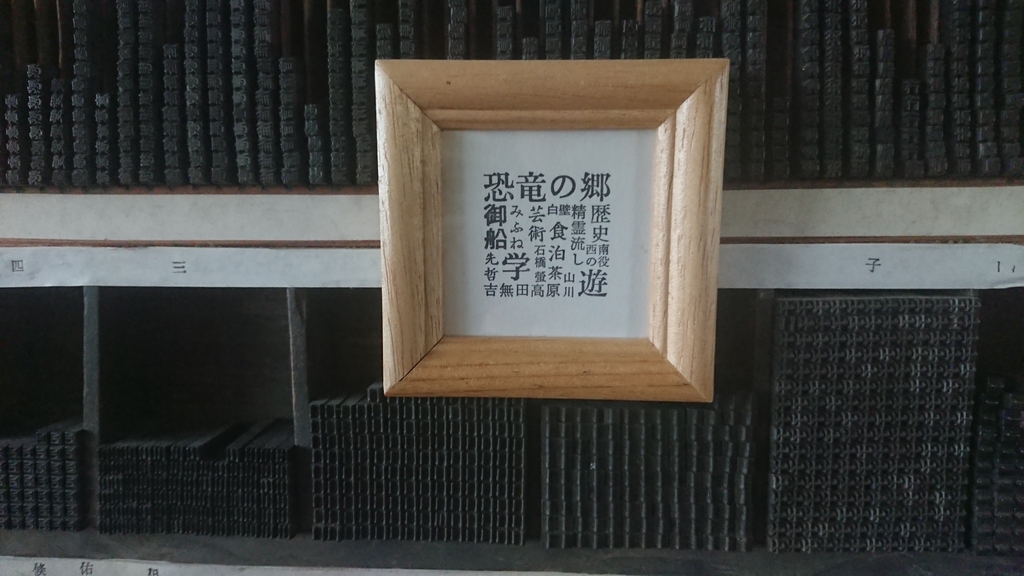 恐竜の郷
歴史
西南の役
遊
精霊流し
山川
白壁
食泊茶
芸術
石橋
螢
みふね
学
御船
先哲
吉無田高原
四
三
子
佑